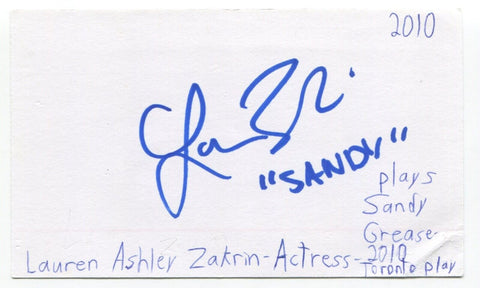 2010
"SANDY"
plays
Sandy
Grease-
2010
Toronto play
Lauren Ashley Zakrin-Actress-